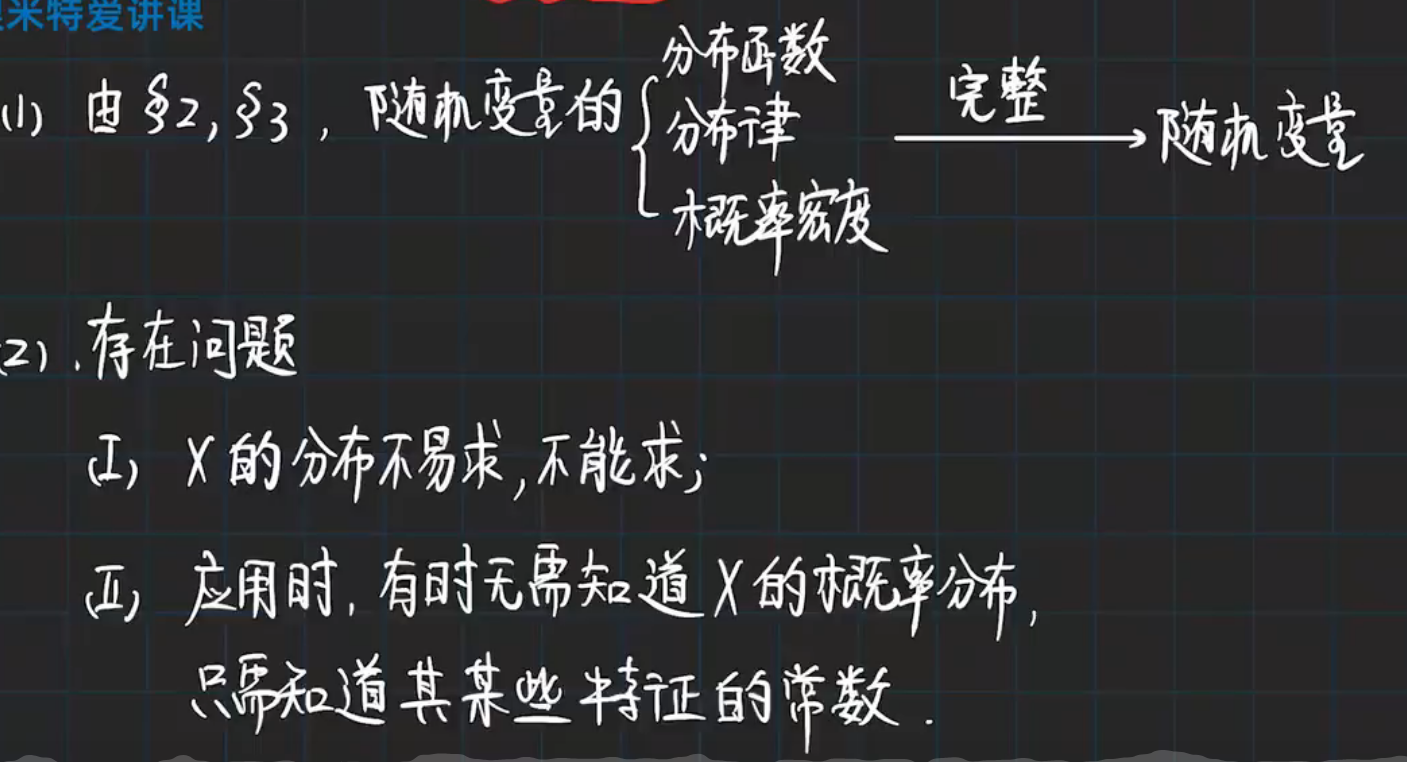 米特爱讲课
(1) 由§2,§3,随机变量的{分布函数 分布律 概率密度 完整→随机变量
(2).存在问题
(I) X的分布不易求,不能求;
(II) 应用时,有时无需知道X的概率分布,
只需知道其某些特征的常数.